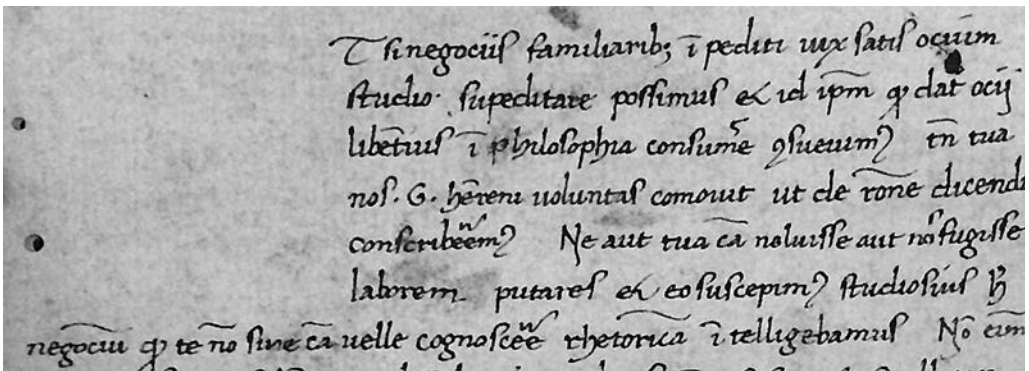 T si negociis familiarib; ī pediti uix satis ociuim
studio· supeditare possimus & id ip̄m qᷓ dat̄ ocij
libēt̄ius ī philosophia consumē̄ ꝯsueuimꝰ tn̄ tua
nos. G. hēreni uoluntas comouit ut de rōne dicendi
conscribeēmꝰ Ne aut tua cā noluisse aut nōs fugisse
laborem putares & eo suscepimꝰ studiosius
negociū te nō sine cā uelle cognoscē̄e rhetorica ī telligebamus Nō eim